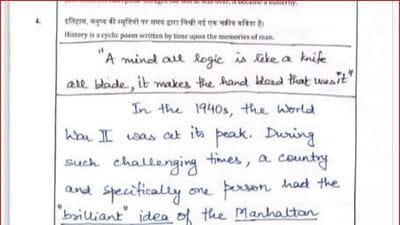 just when the caterpillar thought the world was over, it became a butterfly.
4. इतिहास, मनुष्य की स्मृतियों पर समय द्वारा लिखी गई एक चक्रीय कविता है।
History is a cyclic poem written by time upon the memories of man.
"A mind all logic is like a knife
all blade, it makes the hand bleed that uses it"
In the 1940s, the World
War II was at its peak. During
such challenging times, a country
and specifically one person had the
"brilliant" idea of the Manhaltan